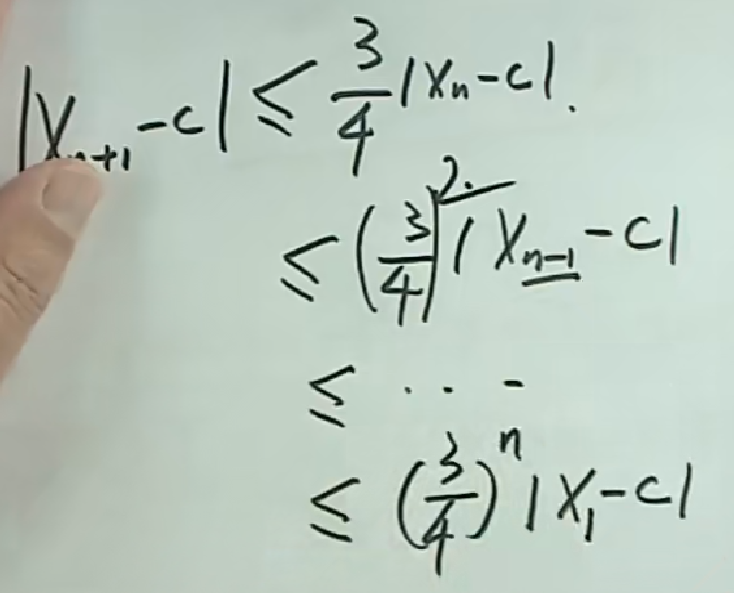 |x_{n+1} - c| ≤ \frac{3}{4} |x_n - c|.
≤ (\frac{3}{4})^2 |x_{n-1} - c|
≤ ...
≤ (\frac{3}{4})^n |x_1 - c|